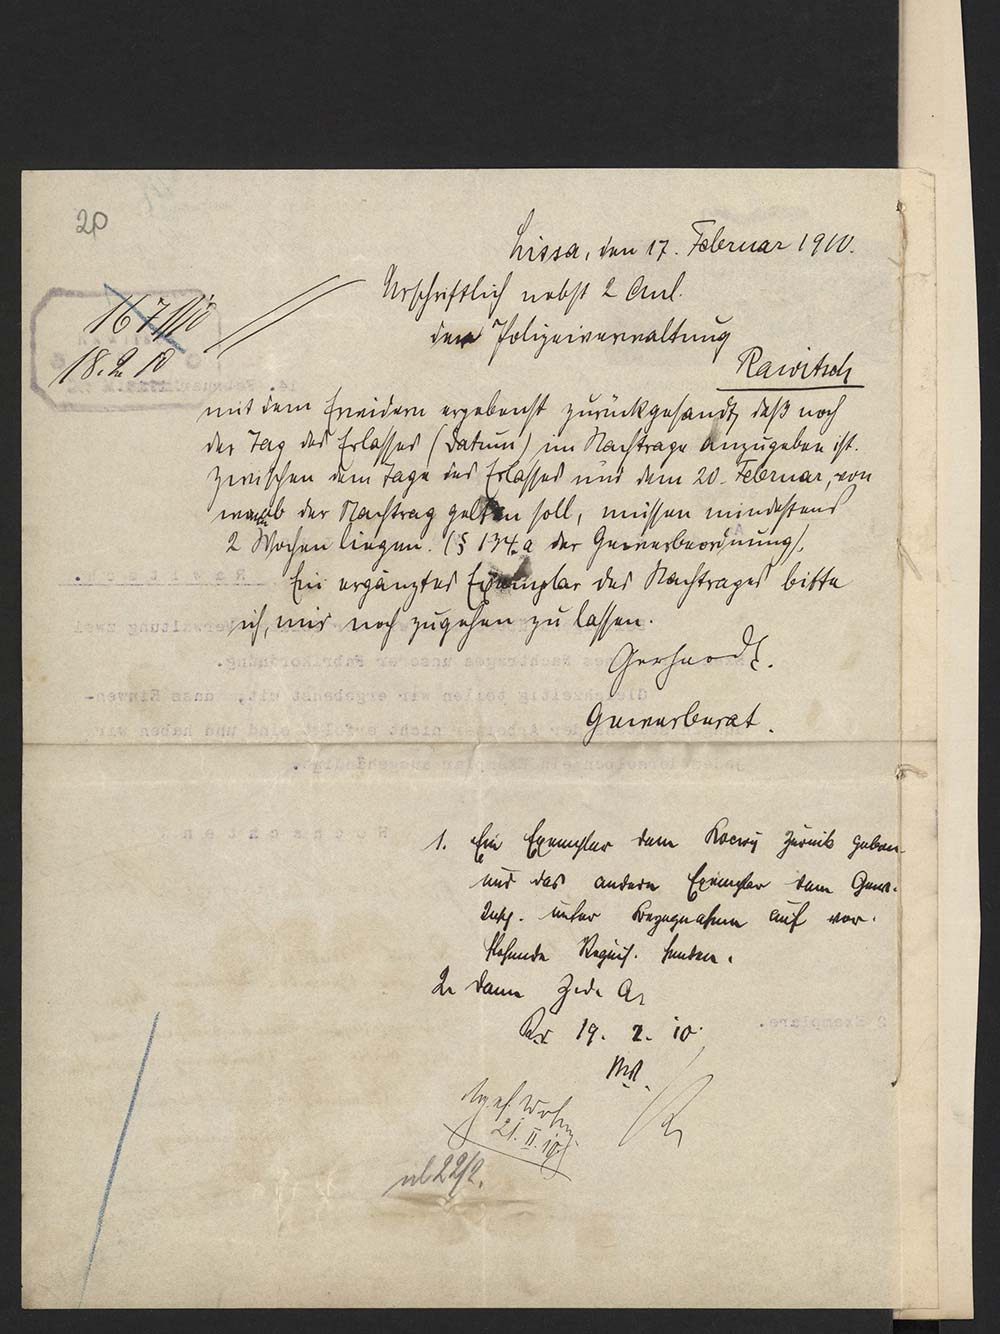 20
Lissa, den 17. Februar 1910.
Urschriftlich nebst 2 Anl.
der Polizeiverwaltung
Rawitsch
1671/10
18.2.10
mit dem Erwidern ergebenst zurückgesandt, daß noch
der Tag des Erlasses (Datum) im Nachtrage anzugeben ist.
Zwischen dem Tage des Erlasses und dem 20. Februar, von
wo ab der Nachtrag gelten soll, müssen mindestens
2 Wochen liegen. (§ 134.a der Gewerbeordnung).
Ein ergänztes Exemplar des Nachtrages bitte
ich, mir noch zugehen zu lassen.
Gerhardt.
Gewerberat.
1. Ein Exemplar dem zurück geben
und das andere Exemplar dem Gew.
Insp. unter Bezugnahme auf vor-
stehende Requis. senden.
2. Dann z. d. A.
Rx 19. 2. 10.
21. II. 10
ab 22/2.